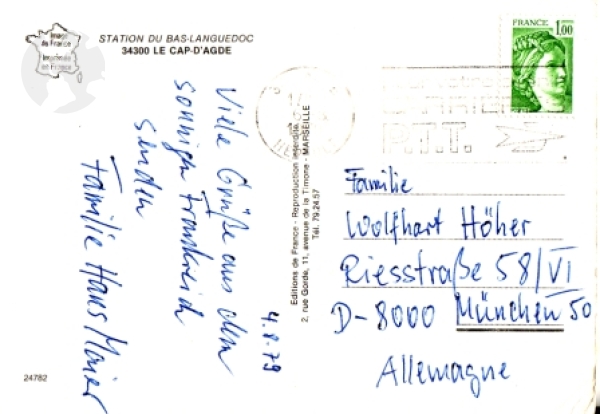 Image
de France
Imprimée
en France
STATION DU BAS-LANGUEDOC
34300 LE CAP-D'AGDE
FRANCE
1,00
P.T.T.
4.8.79
Viele Grüße aus dem
sonnigen Frankreich
senden
Familie Hans Maier
Editions de France - Reproduction interdite
2, rue Gorde, 11, avenue de la Timone - MARSEILLE
Tél. 79.24.57
Familie
Wolfhart Höher
Riesstraße 58/VI
D-8000 München 50
Allemagne
24782